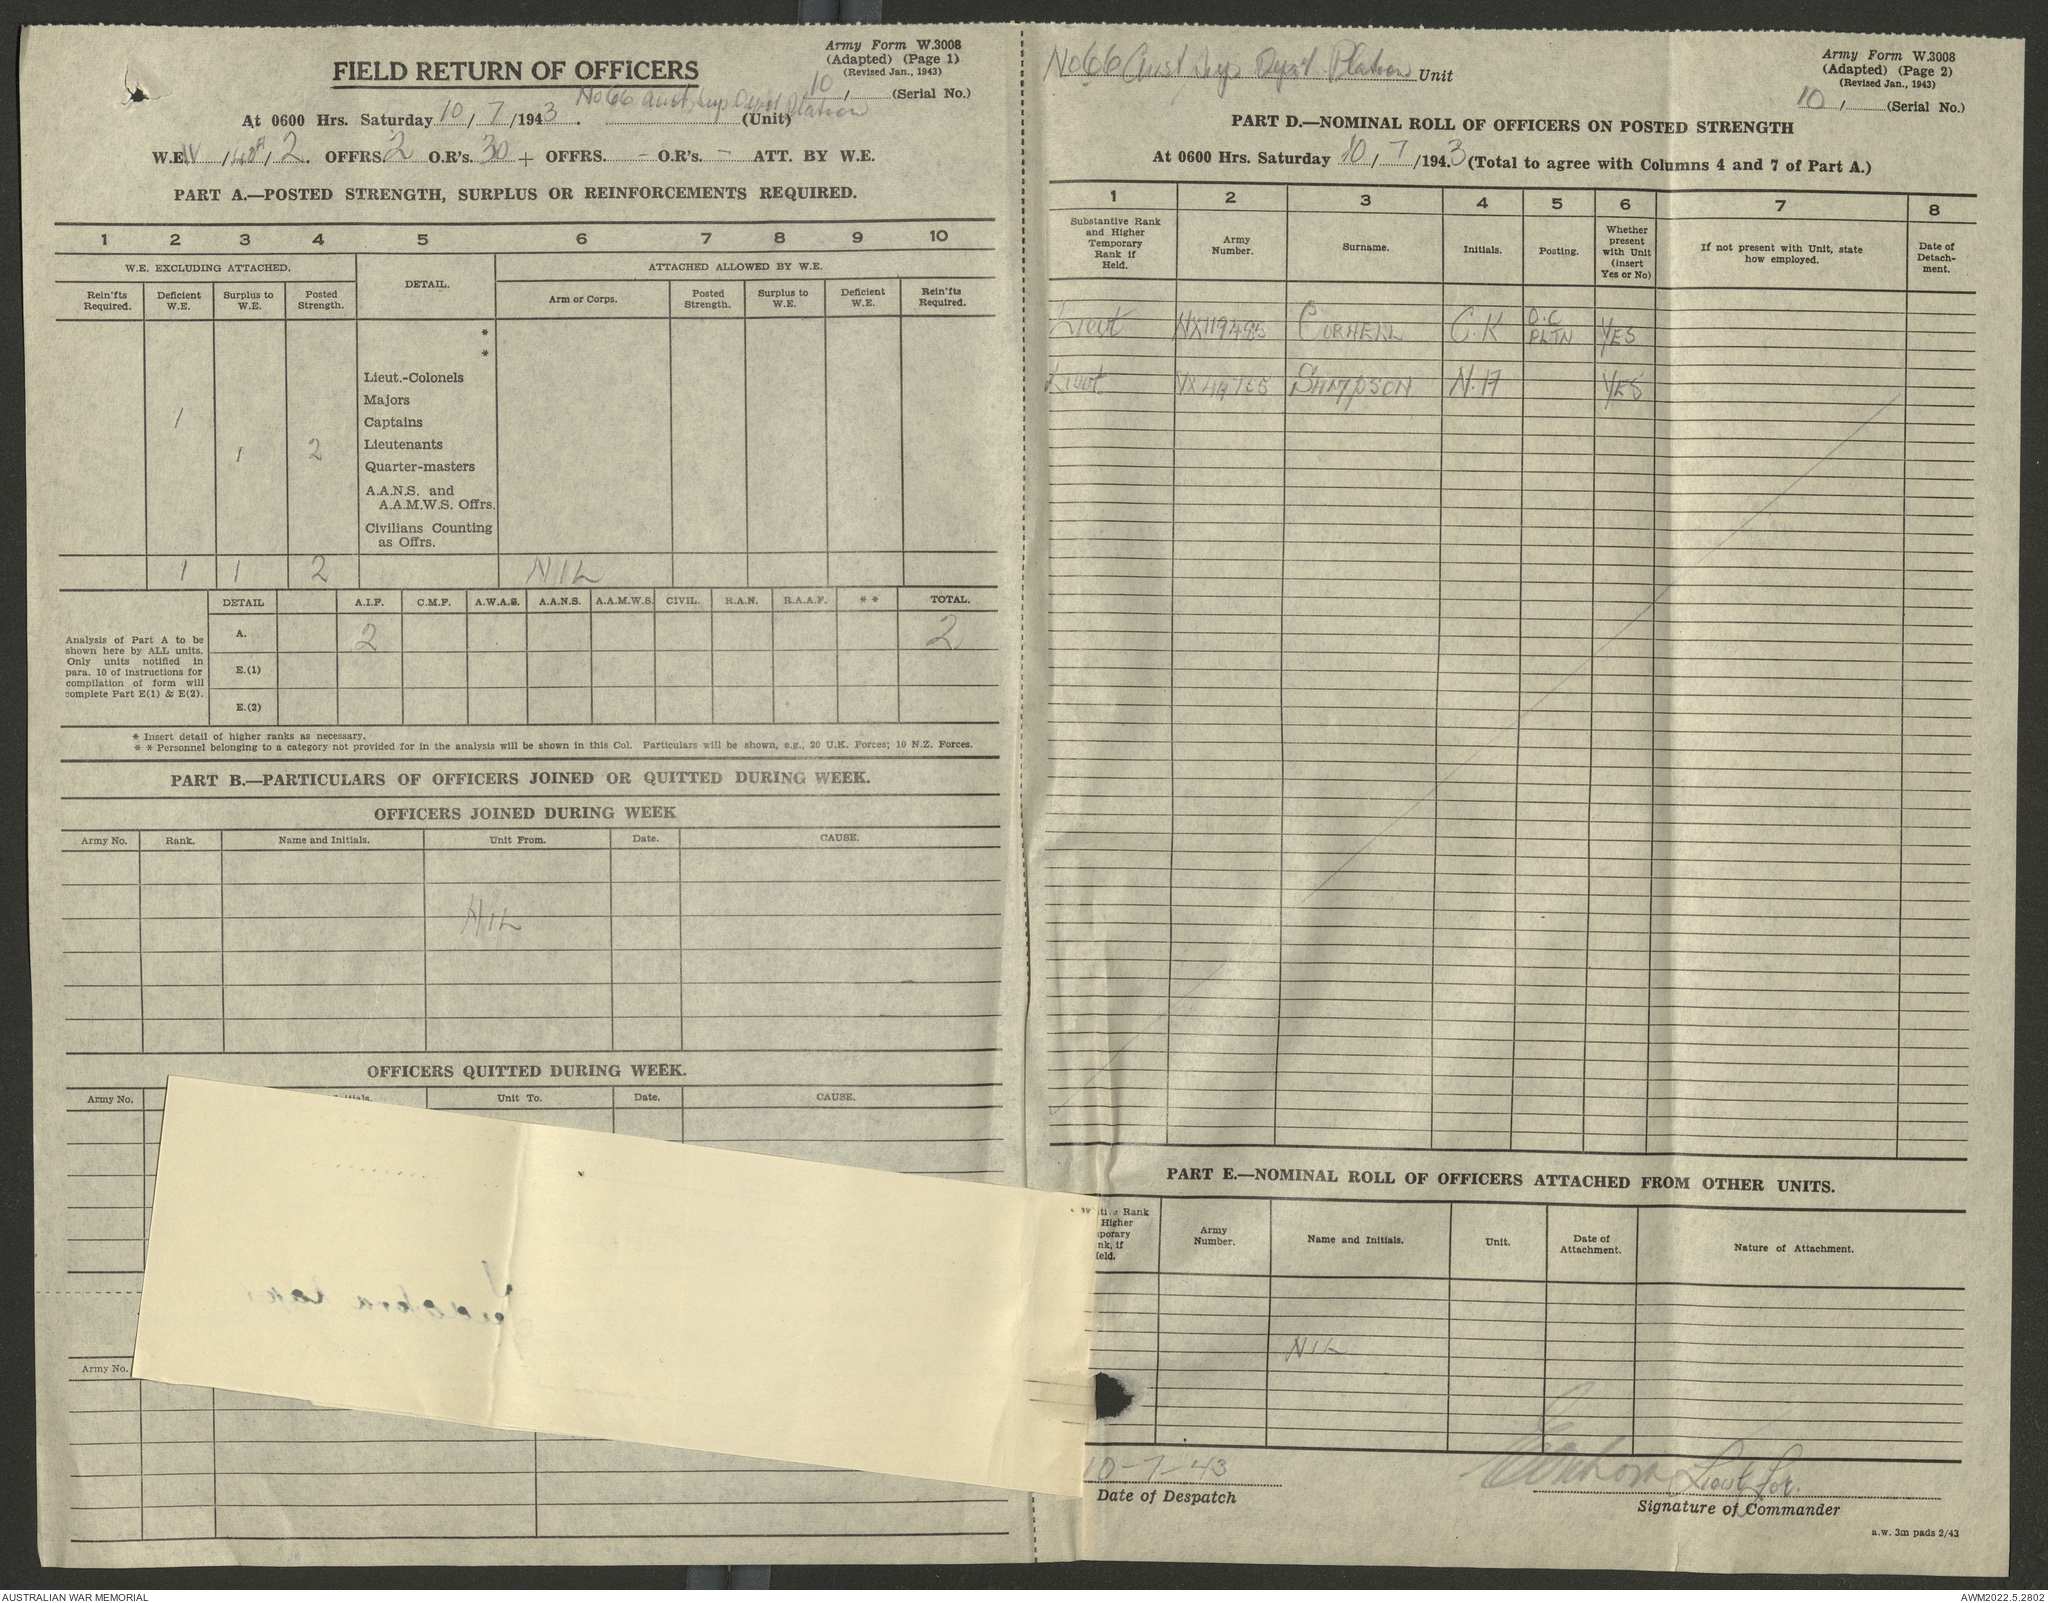 Army Form W.3008
(Adapted) (Page 1)
(Revised Jan., 1943)
FIELD RETURN OF OFFICERS
10, (Serial No.)
No 66 Aust Sup Depot Platoon
At 0600 Hrs. Saturday 10, 7 /1943. (Unit)
W.E. IV , , 2. OFFRS. 2 O.R's. 30 + OFFRS. - O.R's. - ATT. BY W.E.
PART A.—POSTED STRENGTH, SURPLUS OR REINFORCEMENTS REQUIRED.
1 2 3 4 5 6 7 8 9 10
W.E. EXCLUDING ATTACHED. DETAIL. ATTACHED ALLOWED BY W.E.
Rein'fts Required. Deficient W.E. Surplus to W.E. Posted Strength. Arm or Corps. Posted Strength. Surplus to W.E. Deficient W.E. Rein'fts Required.
*
*
Lieut.-Colonels
Majors
1 Captains
1 2 Lieutenants
Quarter-masters
A.A.N.S. and
A.A.M.W.S. Offrs.
Civilians Counting
as Offrs.
1 1 2 NIL
DETAIL A.I.F. C.M.F. A.W.A.S. A.A.N.S. A.A.M.W.S. CIVIL. R.A.N. R.A.A.F. * * TOTAL.
A. 2 2
Analysis of Part A to be
shown here by ALL units.
Only units notified in
para. 10 of instructions for
compilation of form will
complete Part E(1) & E(2).
E.(1)
E.(2)
* Insert detail of higher ranks as necessary.
* * Personnel belonging to a category not provided for in the analysis will be shown in this Col. Particulars will be shown, e.g., 20 U.K. Forces; 10 N.Z. Forces.
PART B.—PARTICULARS OF OFFICERS JOINED OR QUITTED DURING WEEK.
OFFICERS JOINED DURING WEEK
Army No. Rank. Name and Initials. Unit From. Date. CAUSE.
NIL
OFFICERS QUITTED DURING WEEK.
Army No. Initials. Unit To. Date. CAUSE.
Army No.
No 66 Aust Sup Depot Platoon Unit
Army Form W.3008
(Adapted) (Page 2)
(Revised Jan., 1943)
10, (Serial No.)
PART D.—NOMINAL ROLL OF OFFICERS ON POSTED STRENGTH
At 0600 Hrs. Saturday 10, 7 /1943 (Total to agree with Columns 4 and 7 of Part A.)
1 2 3 4 5 6 7 8
Substantive Rank and Higher Temporary Rank if Held. Army Number. Surname. Initials. Posting. Whether present with Unit (insert Yes or No) If not present with Unit, state how employed. Date of Detach- ment.
Lieut NX119485 CORNELL C.K O.C PLTN YES
Lieut SAMPSON N.H YES
PART E.—NOMINAL ROLL OF OFFICERS ATTACHED FROM OTHER UNITS.
tive Rank
Higher
porary
nk, if
Held.
Army Number. Name and Initials. Unit. Date of Attachment. Nature of Attachment.
NIL
10-7-43
Date of Despatch
Lieut for.
Signature of Commander
a.w. 3m pads 2/43
AUSTRALIAN WAR MEMORIAL
AWM2022.5.2802